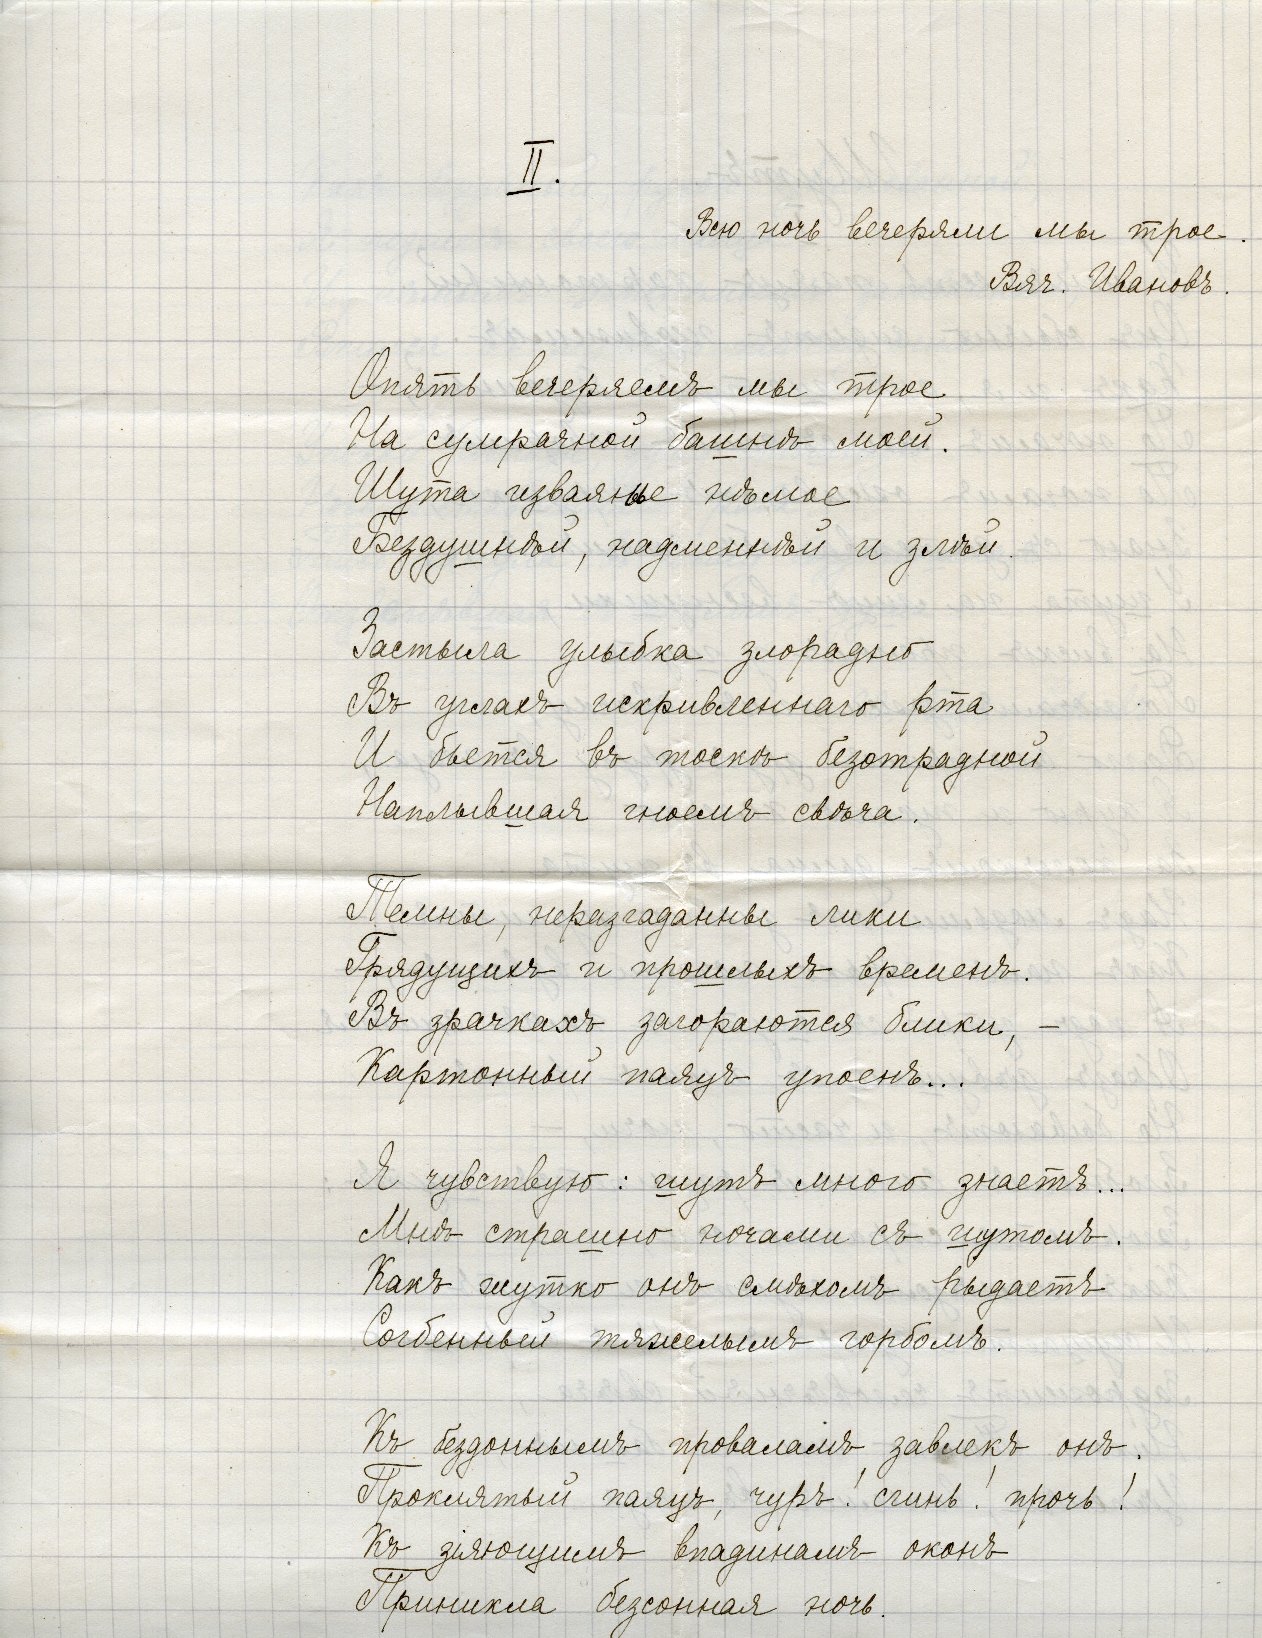 II.
Всю ночь вечеряли мы трое.
Вяч. Ивановъ.
Опять вечеряемъ мы трое
На сумрачной башнѣ моей.
Шута изваянье нѣмое
Бездушнѣй, надменнѣй и злѣй.
Застыла улыбка злорадно
Въ углахъ искривленнаго рта
И бьется въ тоскѣ безотрадной
Наплывшая гноемъ свѣча.
Темны, неразгаданны лики
Грядущихъ и прошлыхъ временъ.
Въ зрачкахъ загораются блики, —
Картонный паяцъ упоенъ...
Я чувствую: шутъ много знаетъ...
Мнѣ страшно ночами съ шутомъ.
Какъ жутко онъ смѣхомъ рыдаетъ
Согбенный тяжелымъ горбомъ.
Къ бездоннымъ проваламъ завлекъ онъ.
Проклятый паяцъ, чуръ! сгинь! прочь!
Къ зіяющимъ впадинамъ оконъ
Приникла безсонная ночь.